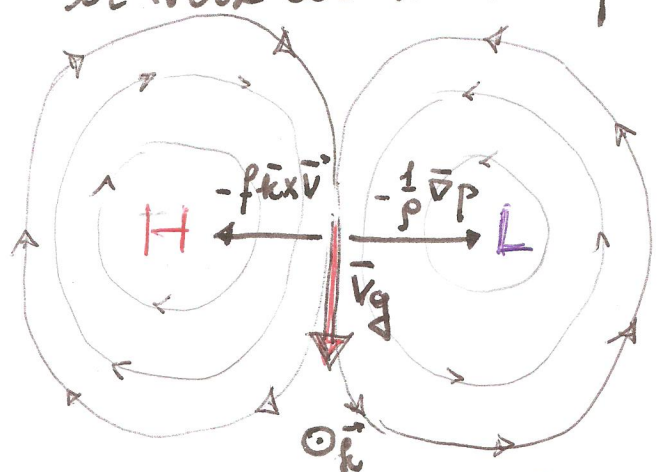 -f k̄×V⃗
-1/ρ ∇̄p
H
L
V̄g
⊙k⃗